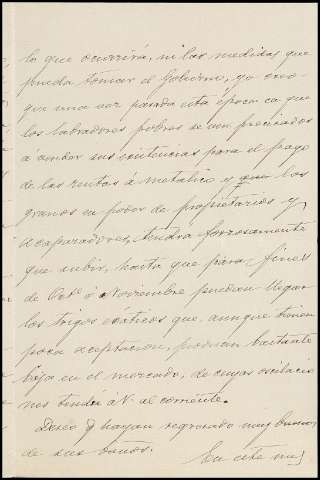 lo que ocurrirá, ni las medidas que
pueda tomar el Gobierno, yo creo
que una vez pasada esta época en que
los labradores pobres se ven precisados
á vender sus existencias para el pago
de las rentas á metalico y que los
granos en poder de propietarios y
acaparadores, tendrá forzosamente
que subir, hasta que para fines
de Oct.e ó Noviembre puedan llegar
los trigos exoticos que, aunque tienen
poca aceptacion, producen bastante
baja en el mercado, de cuyas oscilacio
nes tendré a V. al corriente.
Deseo q hayan regresado muy buenos
de sus baños.
En este mes